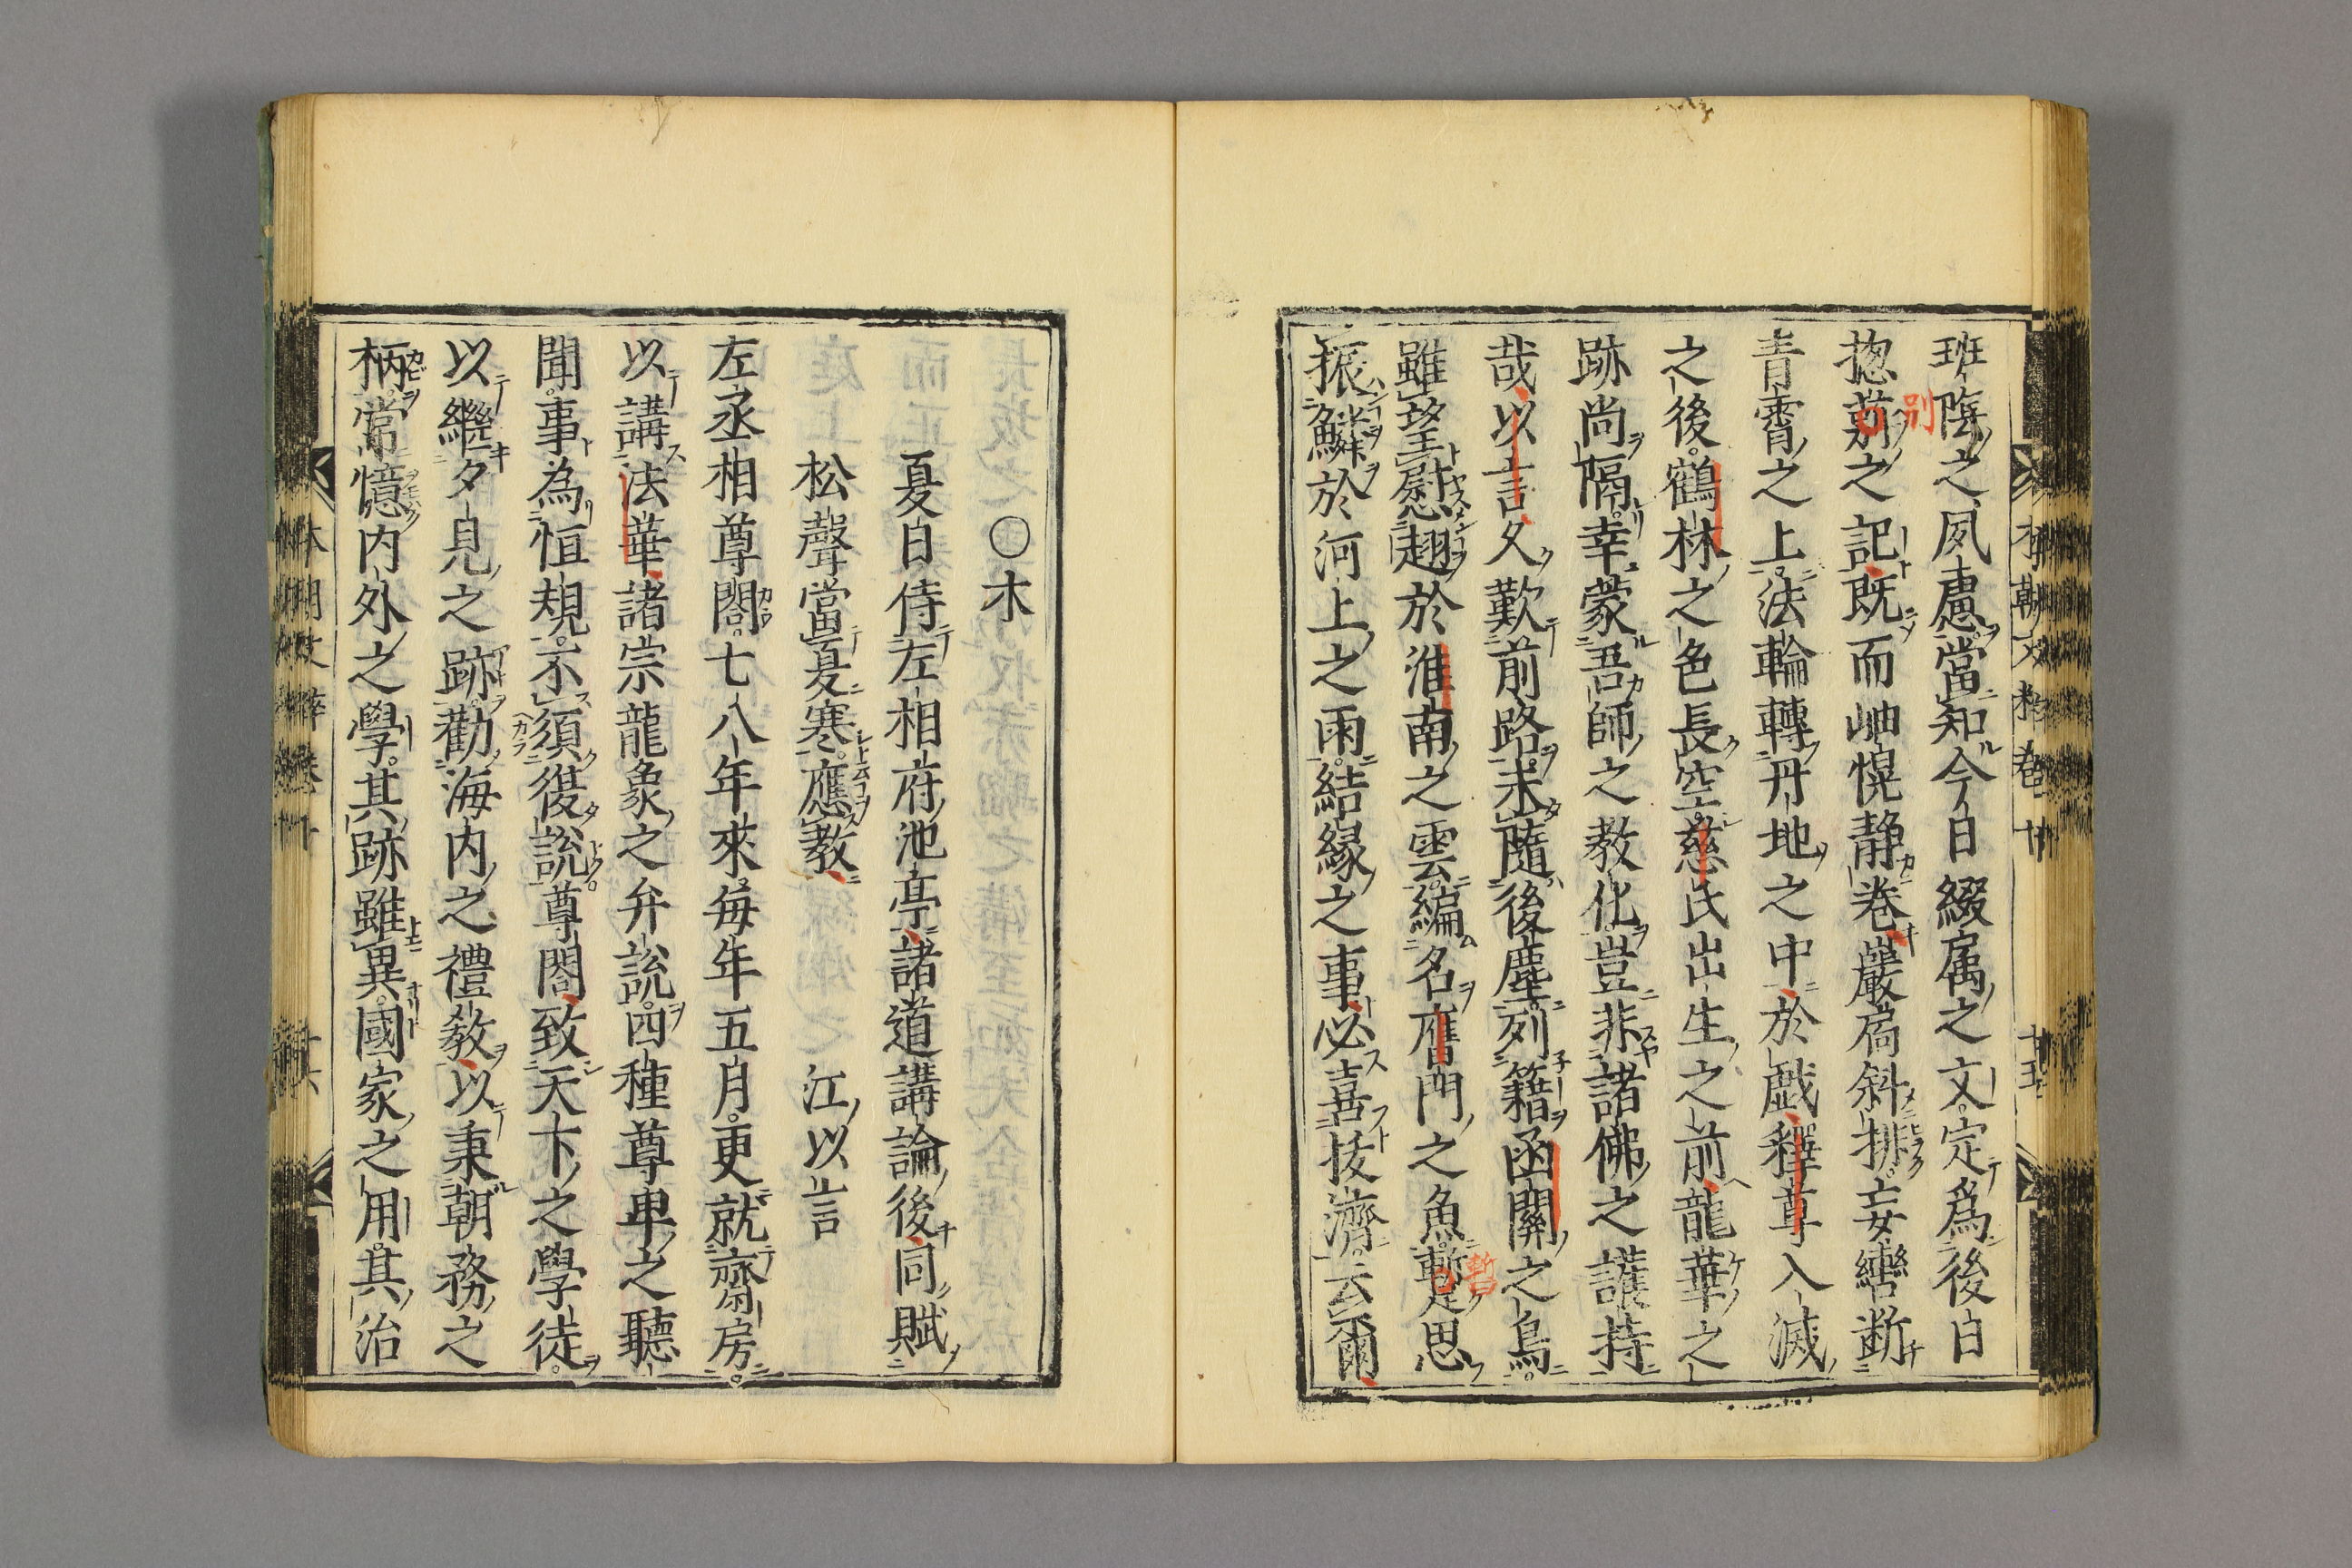 班蔭之夙慮當知今日綴属之文定爲後日
揔莂之記既而岫幌静巻巖扃斜排妄轡断
青霄之上法輪轉丹地之中於戯釋尊入滅
之後鶴林之色長空慈氏出生之前龍華之
跡尚隔幸蒙吾師之教化豈非諸佛之護持
哉以言久歎前路未隨後塵列籍函關之鳥
雖望慰翅於淮南之雲編名鴈門之魚蹔思
振鱗於河上之雨結縁之事必喜抜濟云爾
○木
夏日侍左相府池亭諸道講論後同賦
松聲當夏寒應教 江以言
左丞相尊閤七八年來毎年五月更就齋房
以講法華諸宗龍象之弁説四種尊卑之聽
聞事為恒規不須復説尊閤致天下之學徒
以繼夕見之跡勸海内之禮教以秉朝務之
柄常憶内外之學其跡雖異國家之用其治